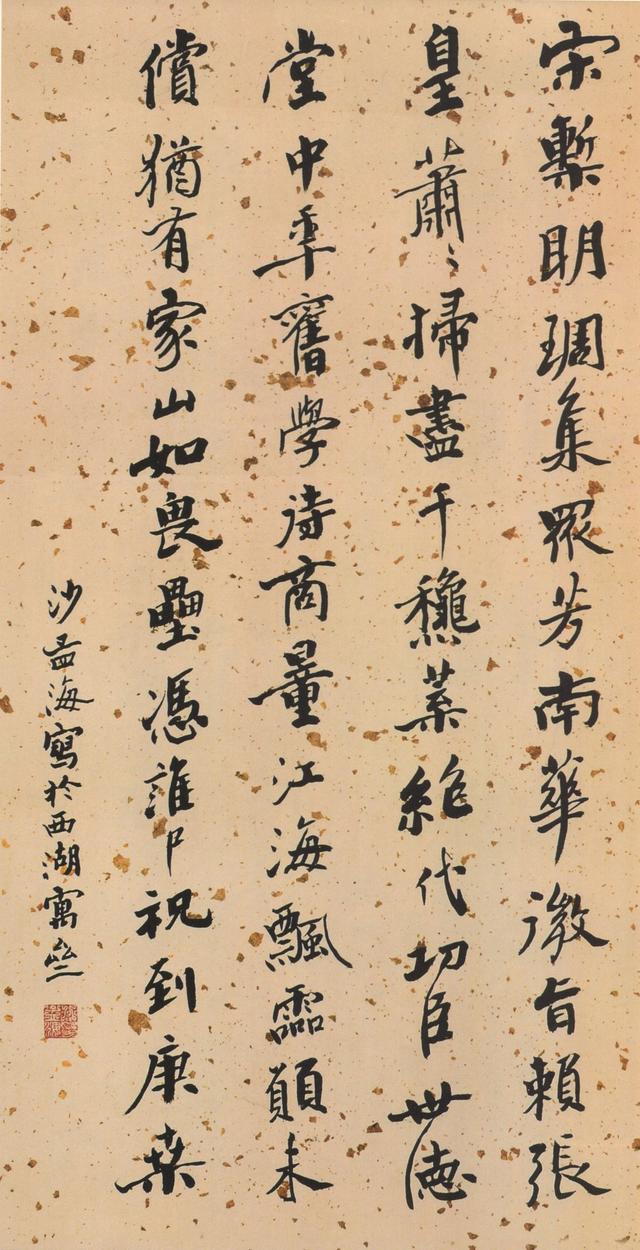 宋槧明琱集眾芳南華微旨賴張
皇蕭〻掃盡千龝葉絕代功臣世德
堂中年舊學待商量江海飄霝願未
償猶有家山如畏壘憑誰尸祝到庚桑
沙孟海寫於西湖寓